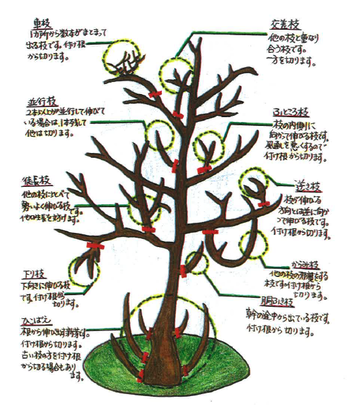 車枝
1カ所から数本がまとまって
出る枝です。付け根
から切ります。
交差枝
他の枝と重なり
合う枝です。
一方を切ります。
並行枝
2本以上が並行して伸びて
いる場合は、1本残して
他は切ります。
ふところ枝
枝の内側に
向かって伸びる枝です。
風通しを悪くするので
付け根から切ります。
徒長枝
他の枝に比べて
勢いよく伸びる枝です。
逆さ枝
枝が伸びる
方向とは逆に向かっ
て伸びる枝です。
付け根から切ります。
下り枝
下向きに伸びる枝
です。付け根から
切ります。
からみ枝
他の枝の邪魔をする
枝です。付け根から
切ります。
胴ぶき枝
幹の途中から出ている枝です。
付け根から切ります。
ひこばえ
付け根から切ります。
古い枝の方を付け根
から切る場合もあり
ます。